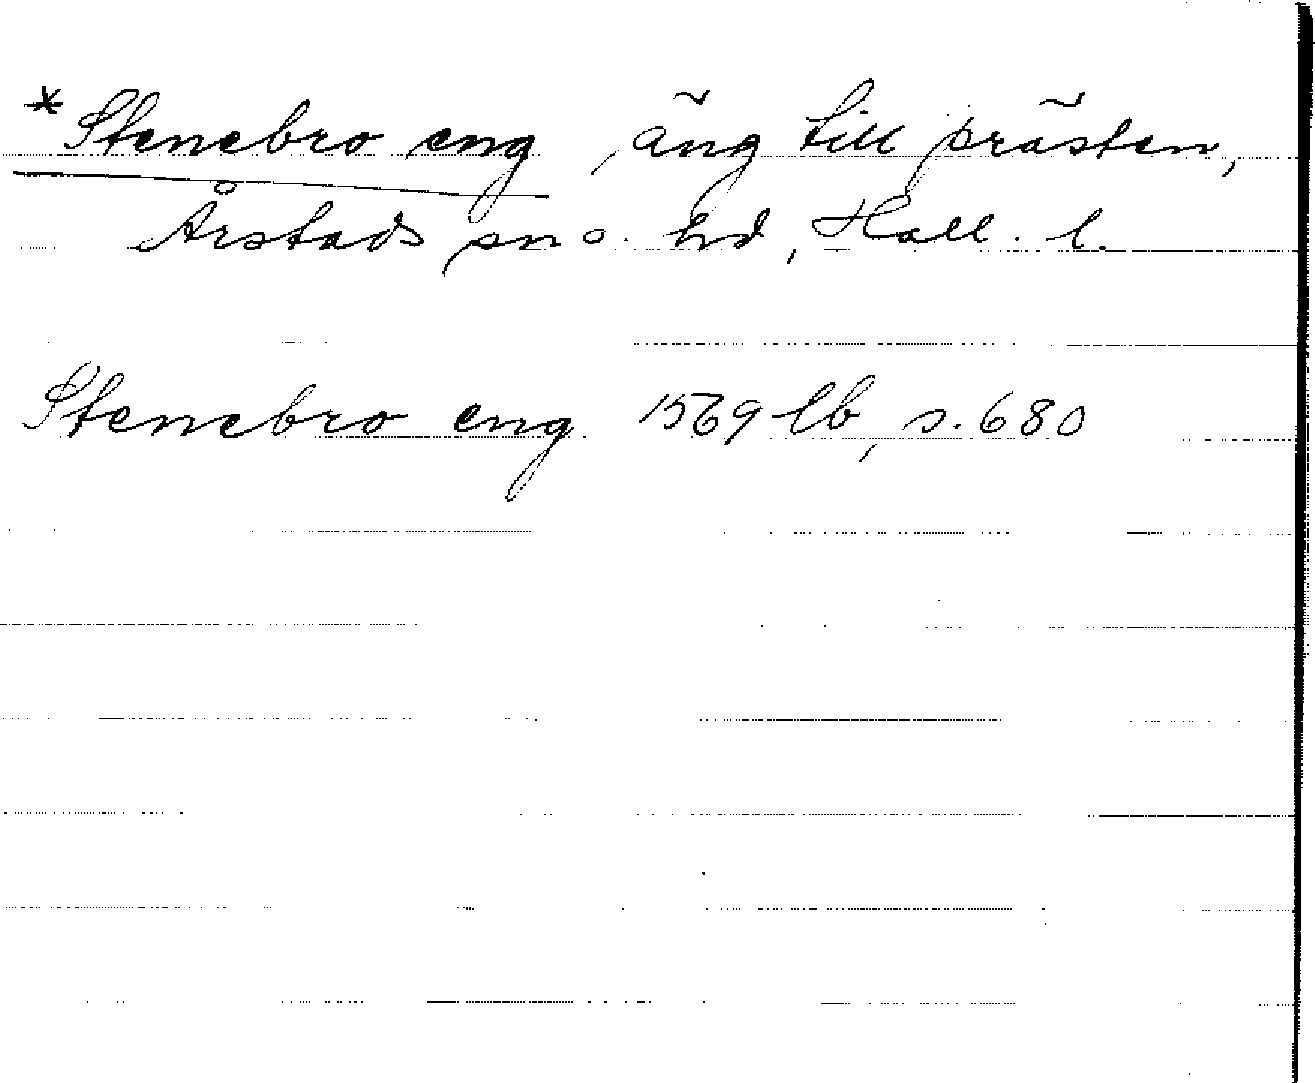 *Stenebro eng, äng till prästen,
Årstads sn o. hd, Hall. l.
Stenebro eng 1569 lb, s. 680